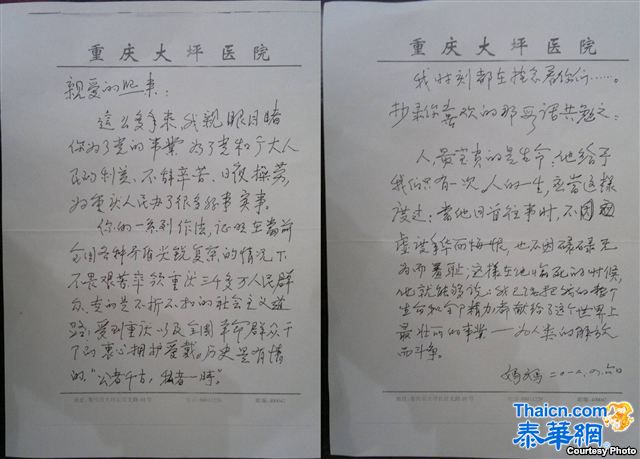 重庆大坪医院
亲爱的熙来:
这么多年来,我亲眼目睹
你为了党的事业为了党和广大人
民的利益、不辞辛苦、日夜操劳,
为重庆人民办了很多好事实事。
你的一系列作法,证明在当前
全国各种矛盾尖锐复杂的情况下
不畏艰苦率领重庆三千多万人民群
众走的是不折不扣的社会主义道
路;受到重庆以及全国革命群众干
了的衷心拥护爱戴。历史是有情
的。"公者千古,私者一时"。
重庆大坪医院
我时刻都在挂念着你们……。
抄录你喜欢的那段话共勉之:
人,最宝贵的是生命,他给予
我们只有一次。人的一生,应当这样
度过:当他回首往事时,不因
虚设年华而悔恨,也不因碌碌无
为而羞耻;这样在他临死的时候,
他就能够说:我已经把我的整个
生命和全部精力都献给了这个世界上
最壮丽的事业——为人类的解放
而斗争。
妈妈 二〇一二.
Thaicn.com
泰華網
Courtesy Photo